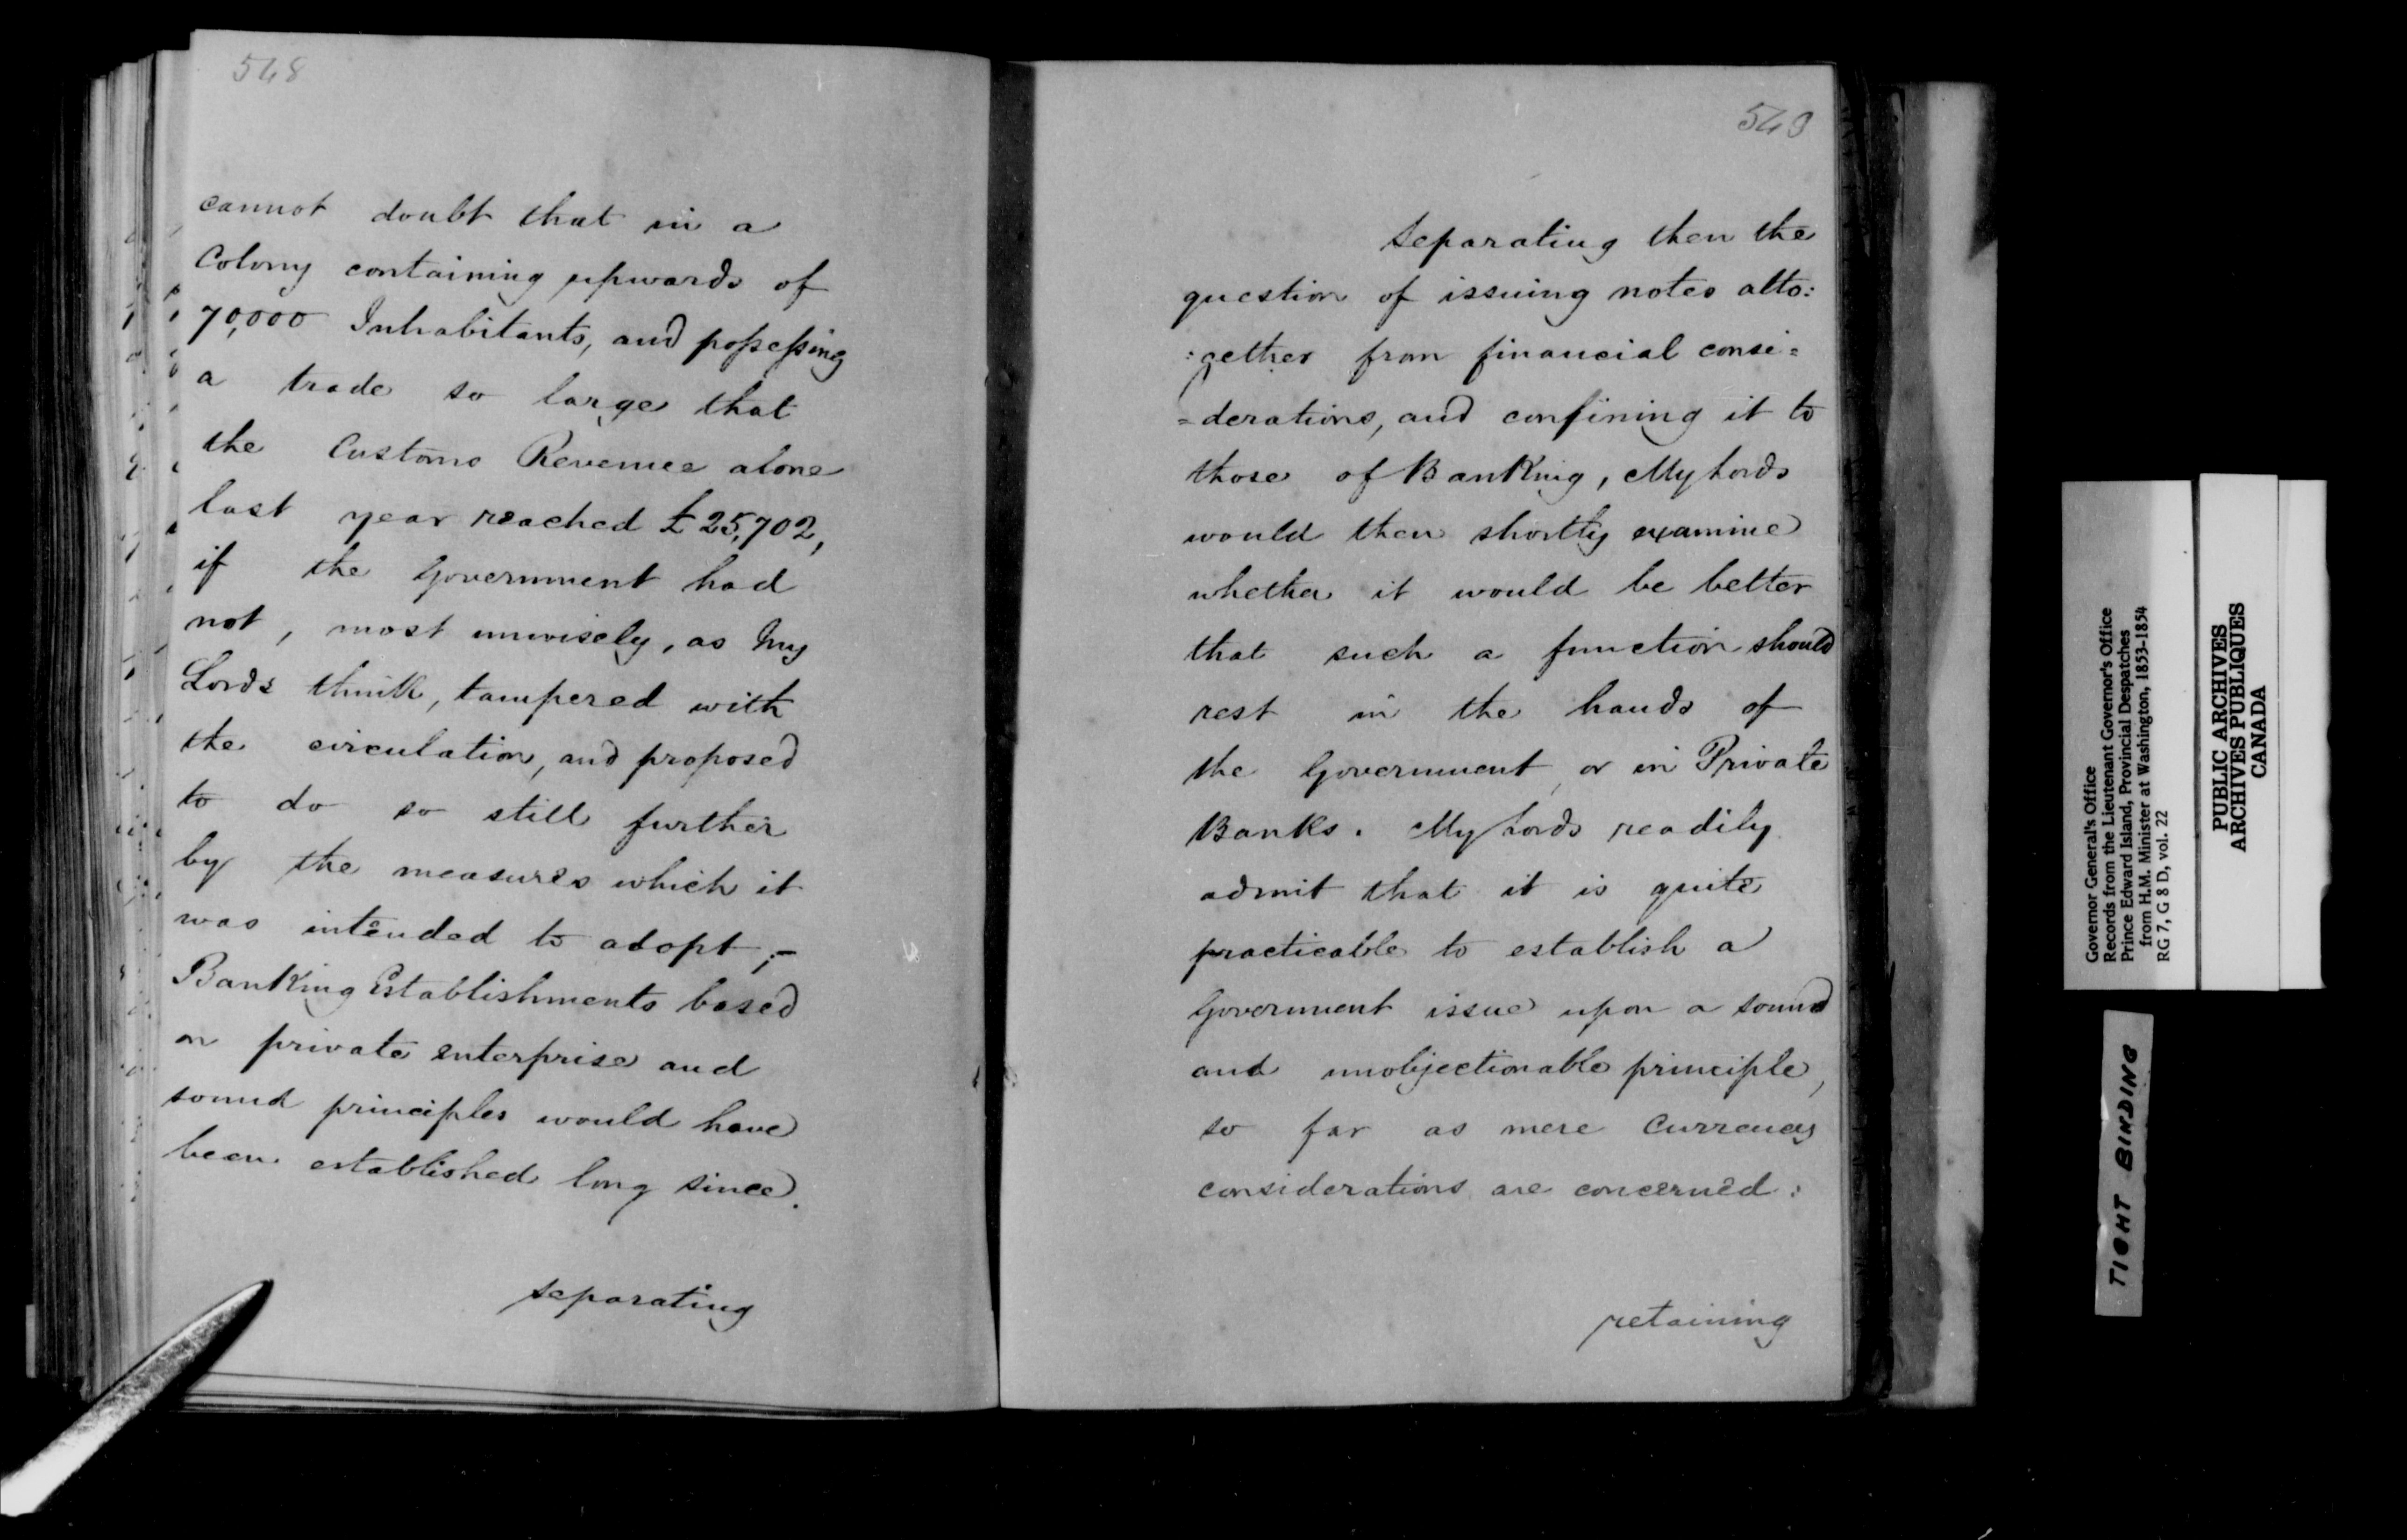 548
cannot doubt that in a
Colony containing upwards of
70,000 Inhabitants, and possessing
a trade so large that
the Customs Revenue alone
last year reached £25,702,
if the Government had
not, most unwisely, as My
Lords think, tampered with
the circulation, and proposed
to do so still further
by the measures which it
was intended to adopt;–
Banking Establishments based
on private enterprise and
sound principles would have
been established long since.
separating
549
Separating then the
question of issuing notes alto:
:gether from financial consi=
=derations, and confining it to
those of Banking, My Lords
would then shortly examine
whether it would be better
that such a function should
rest in the hands of
the Government, or in Private
Banks. My Lords readily
admit that it is quite
practicable to establish a
Government issue upon a sound
and unobjectionable principle,
so far as mere currency
considerations are concerned:
retaining
Governor General's Office
Records from the Lieutenant Governor's Office
Prince Edward Island, Provincial Despatches
from H.M. Minister at Washington, 1853-1854
RG 7, G 8 D, vol. 22
PUBLIC ARCHIVES
ARCHIVES PUBLIQUES
CANADA
TIGHT BINDING